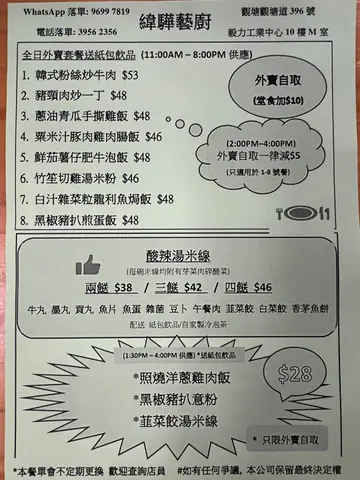 WhatsApp 落單: 9699 7819
電話落單: 3956 2356
緯驊藝廚
觀塘觀塘道 396 號
毅力工業中心 10 樓 M 室
全日外賣套餐送紙包飲品 (11:00AM – 8:00PM 供應)
1. 韓式粉絲炒牛肉 $53
2. 豬頸肉炒一丁 $48
3. 蔥油青瓜手撕雞飯 $48
4. 粟米汁豚肉雞肉腸飯 $46
5. 鮮茄薯仔肥牛泡飯 $48
6. 竹笙切雞湯米粉 $46
7. 白汁雜菜粒龍利魚焗飯 $48
8. 黑椒豬扒煎蛋飯 $48
外賣自取
(堂食加$10)
(2:00PM–4:00PM)
外賣自取一律減$5
(只適用於 1-8 號餐)
酸辣湯米線
(每碗米線均附有芽菜肉碎酸菜)
兩餸 $38 / 三餸 $42 / 四餸 $46
牛丸 墨丸 貢丸 魚片 魚蛋 雜菌 豆卜 午餐肉 韮菜餃 白菜餃 香茅魚餅
配送 紙包飲品/自家製冷泡茶
(1:30PM – 4:00PM 供應) *送紙包飲品
*照燒洋蔥雞肉飯
*黑椒豬扒意粉
*韮菜餃湯米線
$28
* 只限外賣自取
*本餐單會不定期更換 歡迎查詢店員 #如有任何爭議, 本公司保留最終決定權